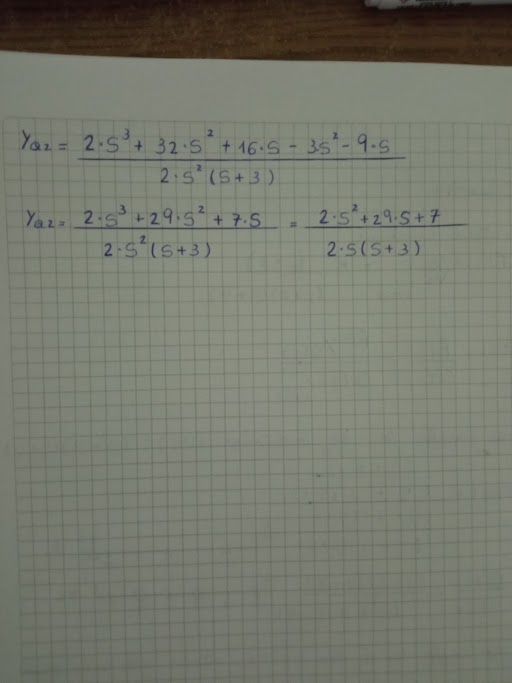 Ya2 = (2·S³ + 32·S² + 16·S - 3S² - 9·S) / (2·S²(S+3))
Ya2 = (2·S³ + 29·S² + 7·S) / (2·S²(S+3)) = (2·S² + 29·S + 7) / (2·S(S+3))